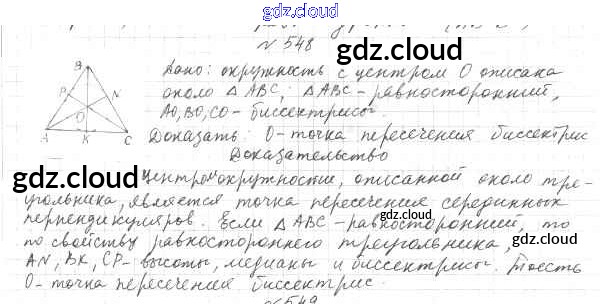 gdz.cloud
№ 548
gdz.cloud
gdz.cloud
Дано: окружность с центром О описана
около △ABC, △ABC - равносторонний,
AO, BO, CO - биссектрисы.
Доказать: O - точка пересечения биссектрис
Доказательство
B
P
N
O
A
K
C
gdz.cloud
Центром окружности, описанной около тре-
угольника, является точка пересечения серединных
перпендикуляров. Если △ABC - равносторонний, то
gdz.cloud
по свойству равностороннего треугольника,
gdz.cloud
AN, BK, CP - высоты, медианы и биссектрисы. То есть
gdz.cloud
O - точка пересечения биссектрис.
gdz.cloud
№ 549